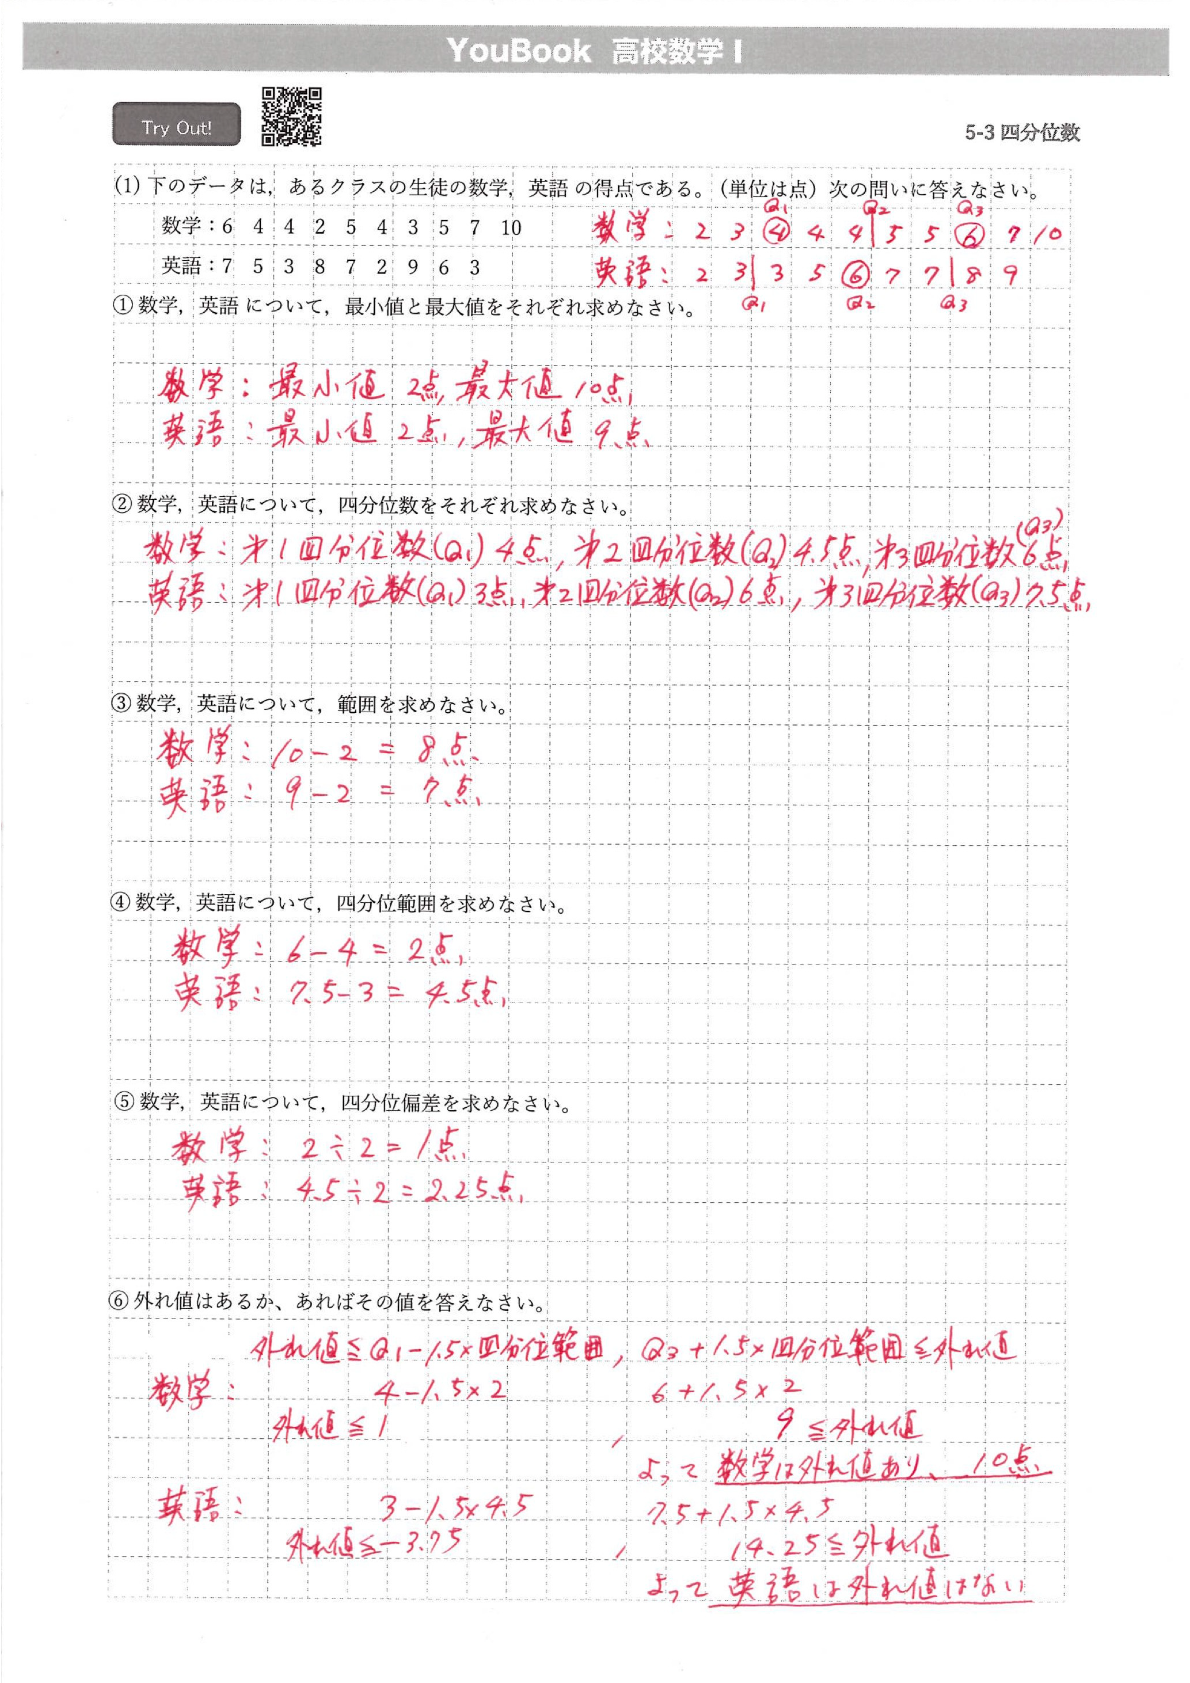 YouBook 高校数学 I
Try Out!
5-3 四分位数
(1) 下のデータは，あるクラスの生徒の数学，英語 の得点である。（単位は点）次の問いに答えなさい。
Q1 Q2 Q3
数学：6 4 4 2 5 4 3 5 7 10 数学： 2 3 ④ 4 4 | 5 5 ⑥ 7 10
英語：7 5 3 8 7 2 9 6 3 英語： 2 3 | 3 5 ⑥ 7 7 | 8 9
① 数学，英語 について，最小値と最大値をそれぞれ求めなさい。 Q1 Q2 Q3
数学：最小値 2点, 最大値 10点,
英語：最小値 2点, 最大値 9点
② 数学，英語について，四分位数をそれぞれ求めなさい。
数学：第1四分位数(Q1) 4点, 第2四分位数(Q2) 4.5点, 第3四分位数(Q3) 6点,
英語：第1四分位数(Q1) 3点, 第2四分位数(Q2) 6点, 第3四分位数(Q3) 7.5点,
③ 数学，英語について，範囲を求めなさい。
数学： 10 − 2 = 8点
英語： 9 − 2 = 7点
④ 数学，英語について，四分位範囲を求めなさい。
数学： 6 − 4 = 2点,
英語： 7.5 − 3 = 4.5点,
⑤ 数学，英語について，四分位偏差を求めなさい。
数学： 2 ÷ 2 = 1点
英語： 4.5 ÷ 2 = 2.25点,
⑥ 外れ値はあるか、あればその値を答えなさい。
外れ値 ≦ Q1 − 1.5 × 四分位範囲 , Q3 + 1.5 × 四分位範囲 ≦ 外れ値
数学： 4 − 1.5 × 2 6 + 1.5 × 2
外れ値 ≦ 1 , 9 ≦ 外れ値
よって 数学は外れ値あり、 10点
英語： 3 − 1.5 × 4.5 7.5 + 1.5 × 4.5
外れ値 ≦ −3.75 , 14.25 ≦ 外れ値
よって 英語は外れ値はない